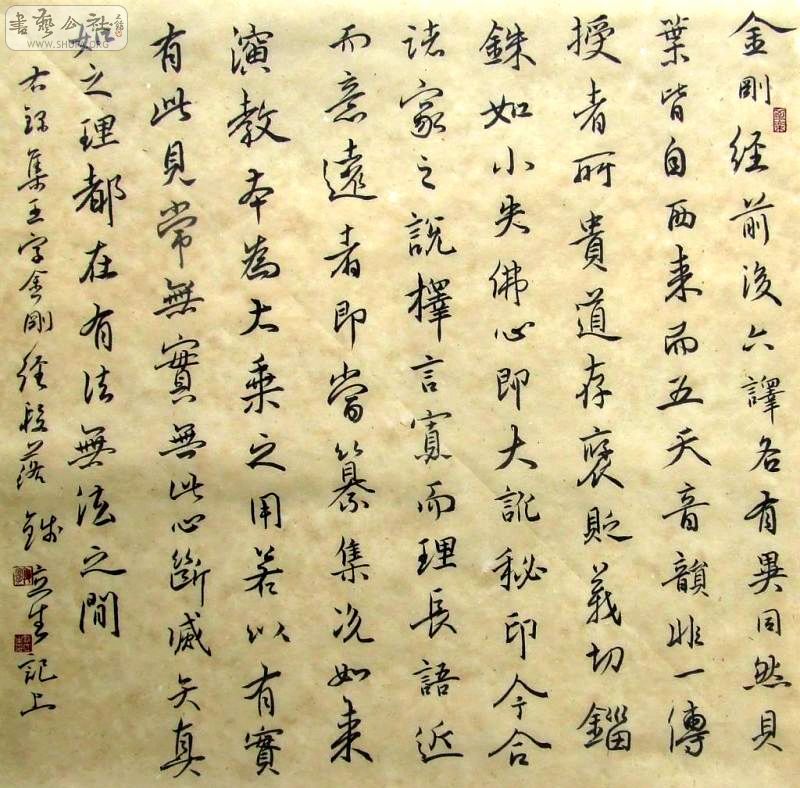 金剛經前後六譯各有異同然貝
葉皆自西来而五天音韻非一傳
授者所貴道存褒貶義切錙
銖如小失佛心即大訛秘印今合
諸家之說擇言寡而理長語近
而意遠者即當纂集况如来
演教本為大乘之用若以有實
有此見常無實無此心斷滅矣真
如之理都在有法無法之間
右録集王字金剛經段落 生記上
書藝公社